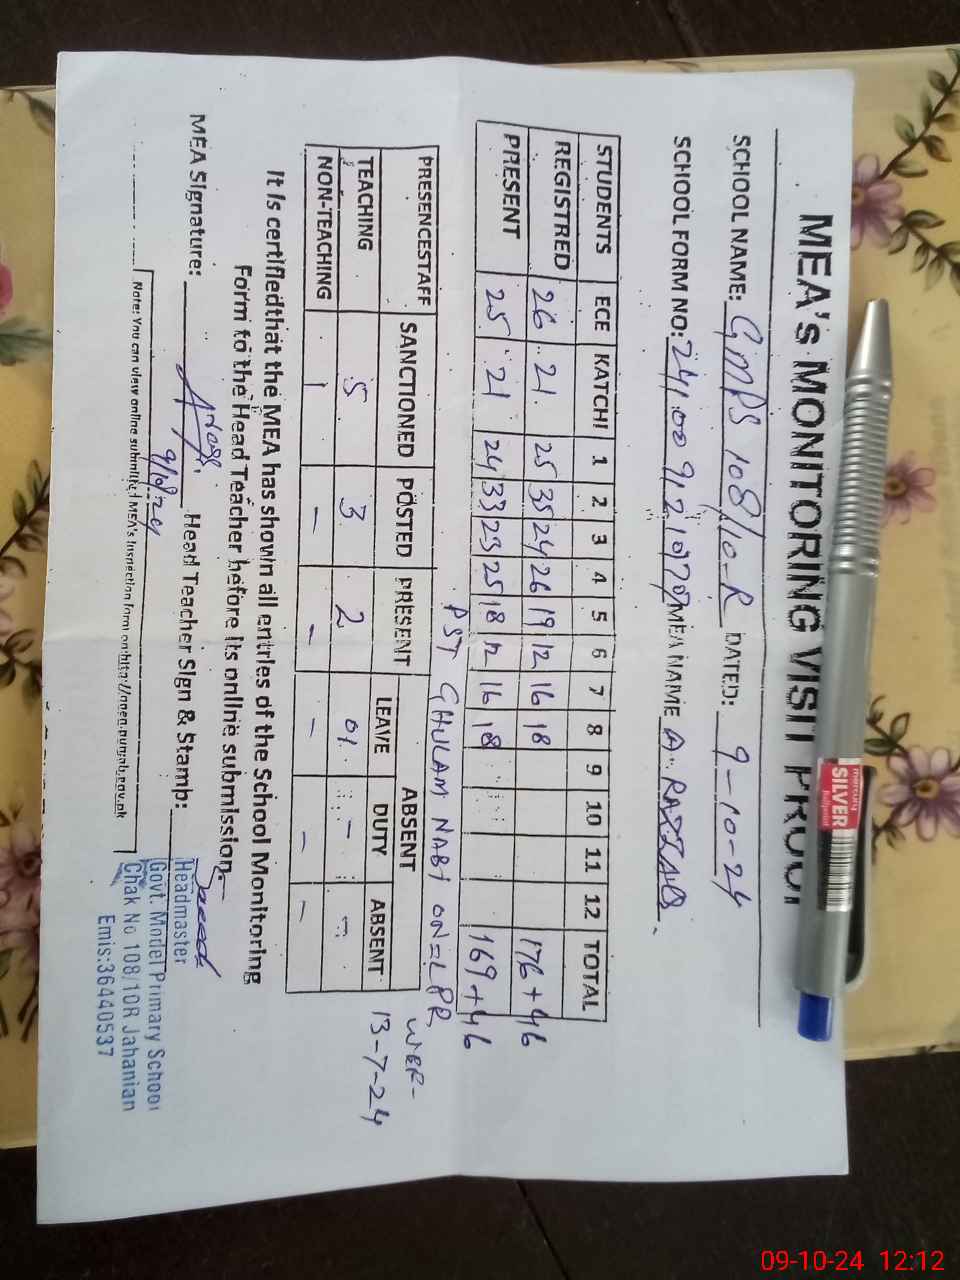 MEA's MONITORING VISIT PROOF
SCHOOL NAME: GMPS 108/10-R DATED: 9-10-24
SCHOOL FORM NO: MEA NAME A. RAZZAQ
STUDENTS ECE KATCHI 1 2 3 4 5 6 7 8 9 10 11 12 TOTAL
REGISTRED 26 21 25 35 24 26 19 12 16 18 176+46
PRESENT 25 21 24 33 23 25 18 12 16 18 169+46
PST GHULAM NABI ON=LPR WEF-
13-7-24
PRESENCESTAFF SANCTIONED POSTED PRESENT ABSENT
LEAVE DUTY ABSENT
TEACHING 5 3 2 01 - -
NON-TEACHING 1 - - - - -
It is certifiedthat the MEA has shown all entries of the School Monitoring
Form to the Head Teacher before its online submission.
MEA Signature: Head Teacher Sign & Stamp:
9/10/24
Headmaster
Govt. Model Primary School
Chak No 108/10R Jahanian
Emis:36440537
Note: You can view online submitted MEA's Inspection form on
mercury
SILVER
ballpoint
09-10-24 12:12